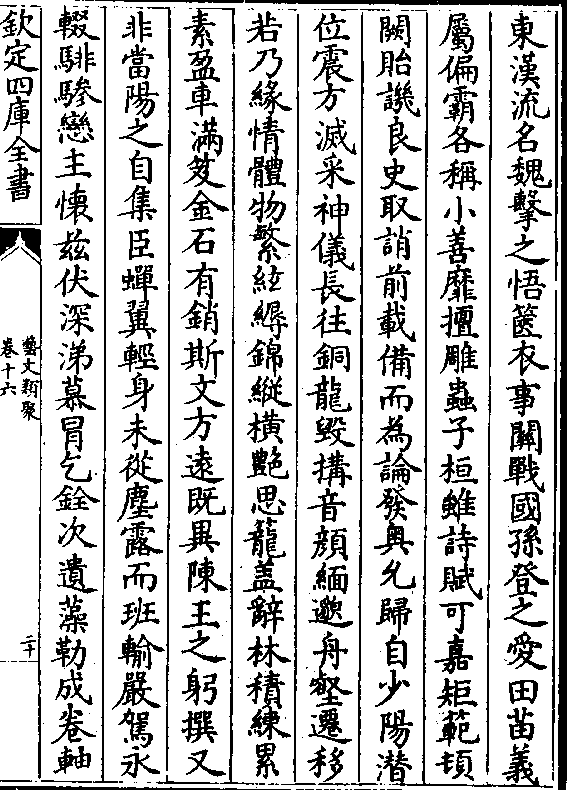 東漢流名魏擊之悟篋衣事闗戰國孫登之愛田苗義
屬偏霸各稱小善靡擅雕蟲子桓雖詩賦可嘉矩範頓
闕貽譏良史取誚前載備而為論發奥允歸自少陽潜
位震方滅采神儀長往銅龍毁搆音顔緬邈舟壑遷移
若乃緣情體物繁絃縟錦縱横艷思籠盖辭林積練累
素盈車滿笈金石有銷斯文方逺既異陳王之躬撰又
非當陽之自集臣蟬翼輕身未從塵露而班輸嚴駕永
輟騑驂戀主懷兹伏深涕慕冒乞銓次遺藻勒成卷軸
欽定四庫全書
藝文類聚
卷十六
二十